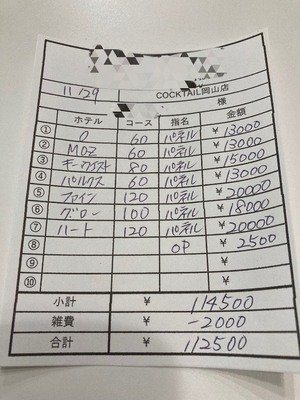 11/29
COCKTAIL岡山店
様
ホテル コース 指名 金額
① O 60 パネル ¥13000
② MOZ 60 パネル ¥13000
③ 80 パネル ¥15000
④ パルクス 60 パネル ¥13000
⑤ ファイン 120 パネル ¥20000
⑥ グロー 100 パネル ¥18000
⑦ ハート 120 パネル ¥20000
⑧ OP ¥2500
⑨
⑩
小計 ¥ 114500
雑費 ¥ -2000
合計 ¥ 112500